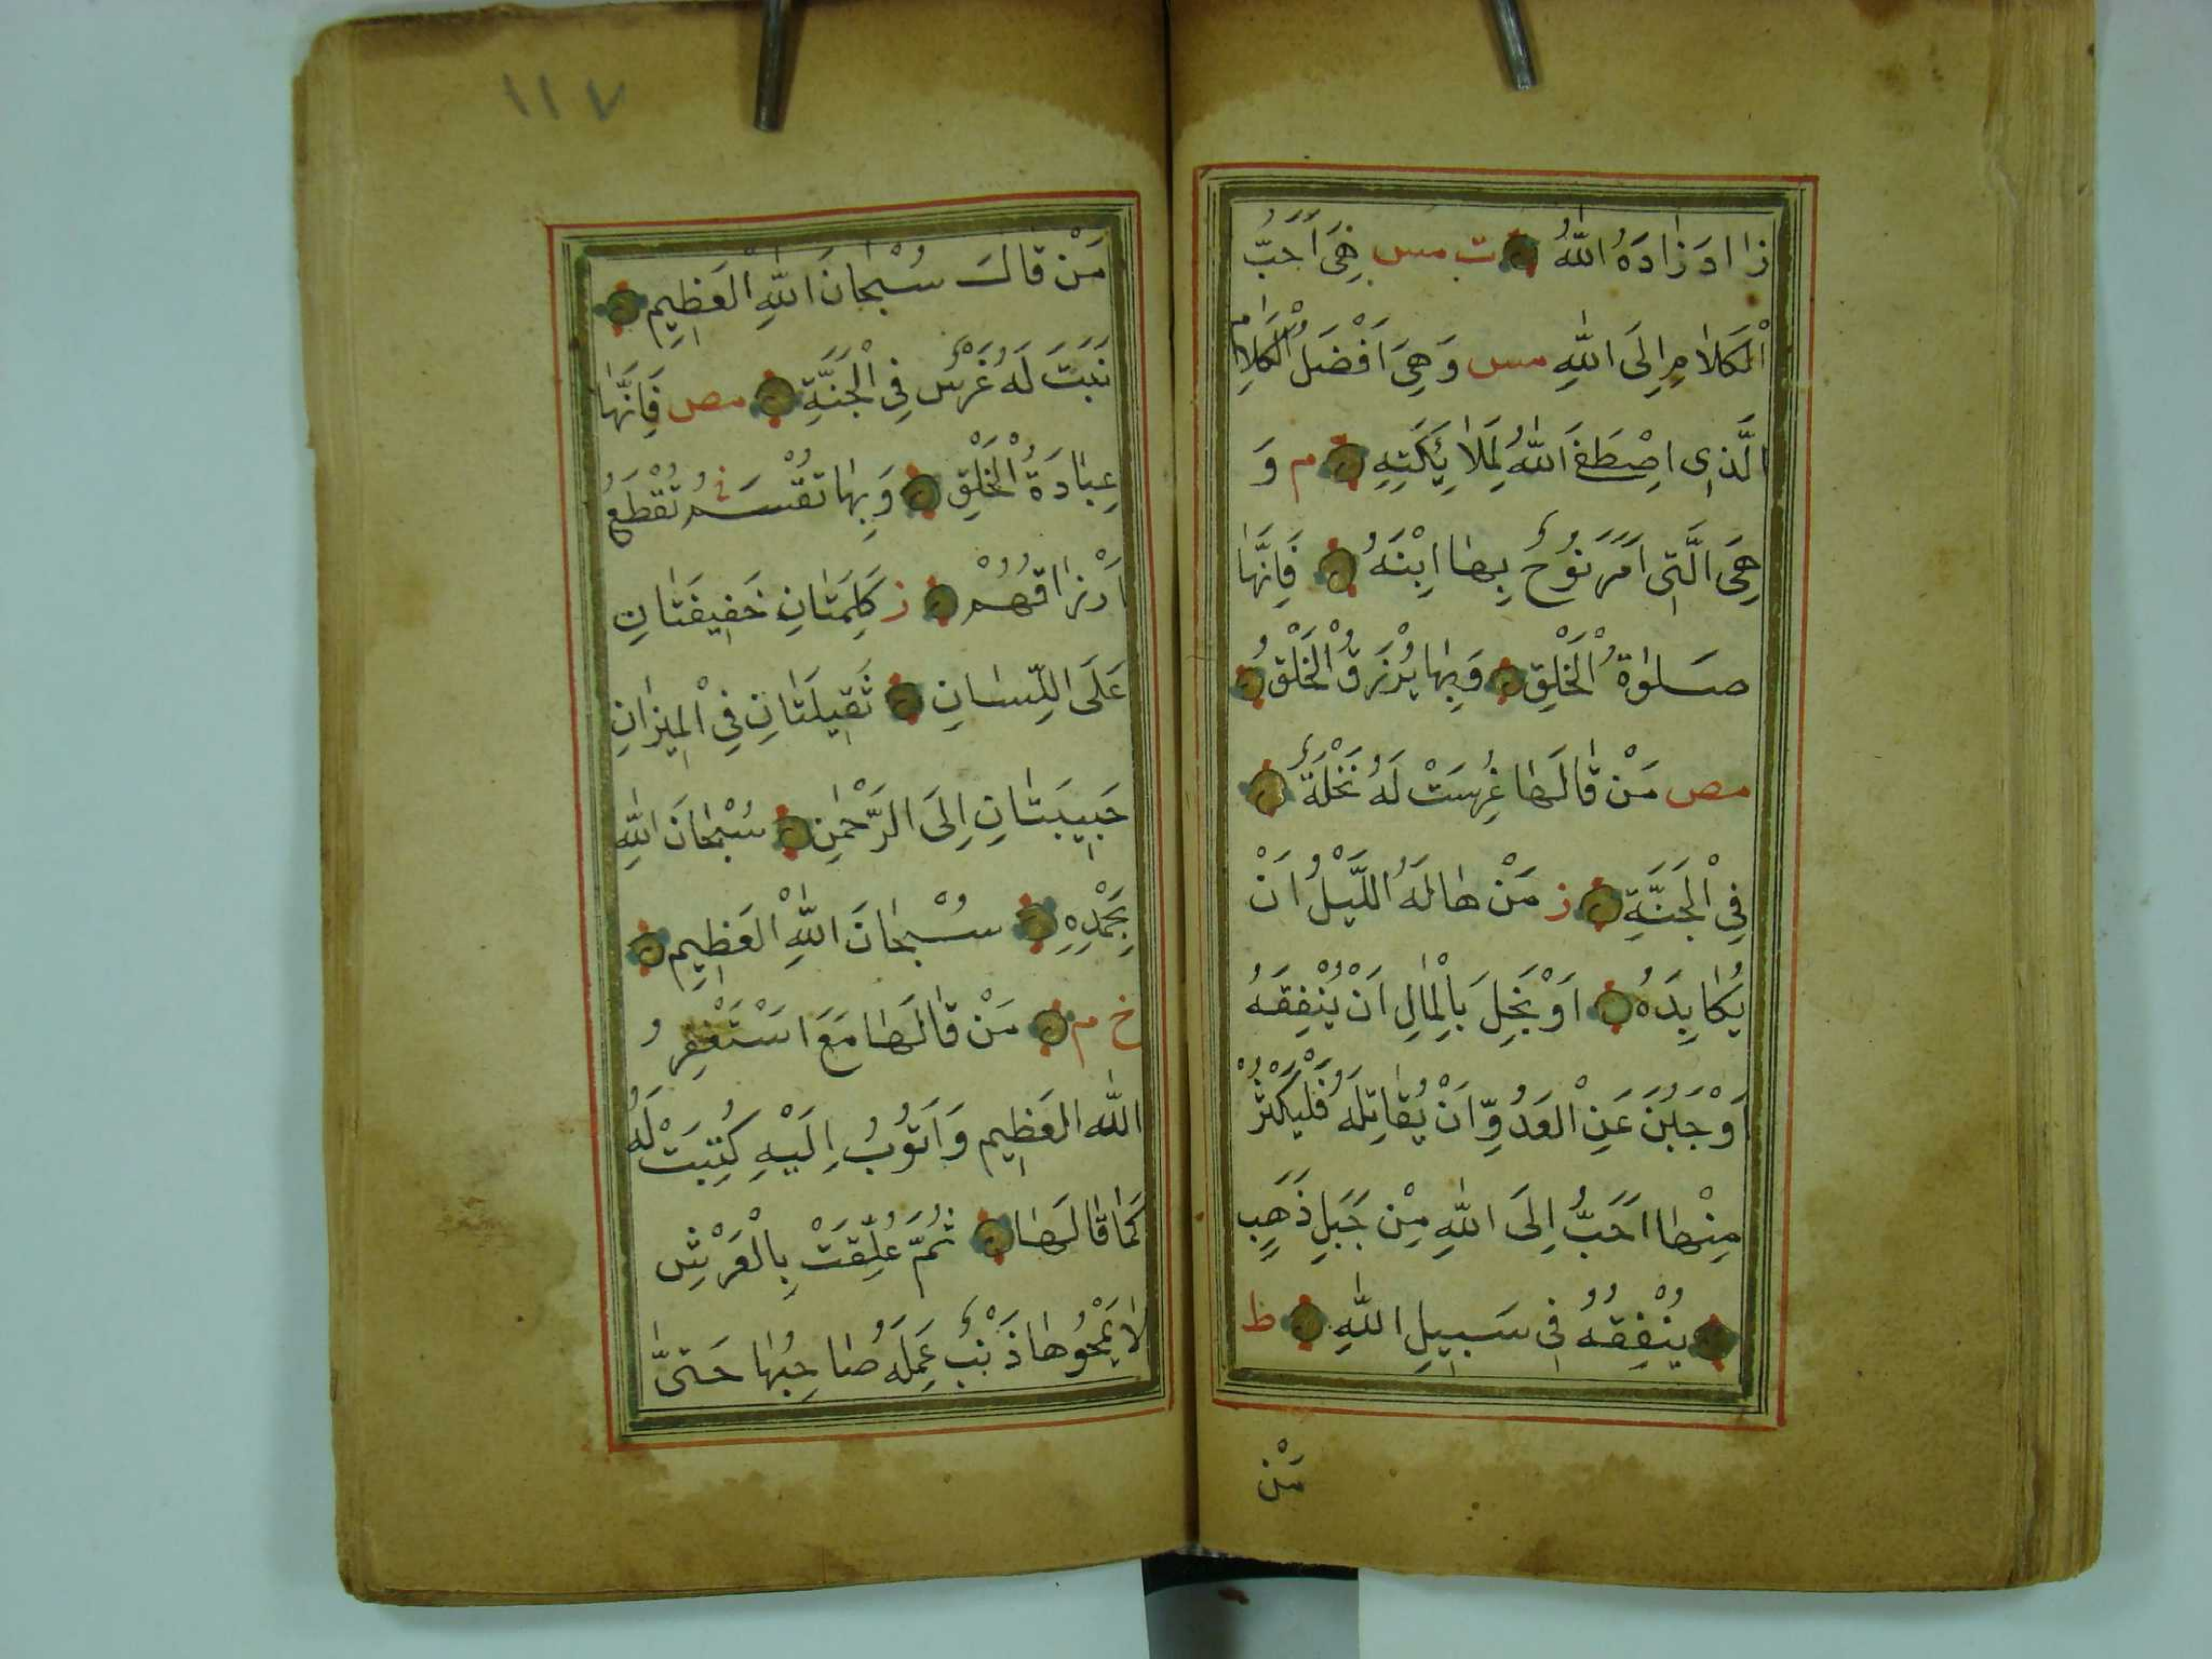 زَادَ زَادَهُ اللّٰهُ ت مس هِىَ اَحَبُّ
الْكَلَامِ اِلَى اللّٰهِ مس وَهِىَ اَفْضَلُ الْكَلَامِ
الَّذِى اصْطَفَى اللّٰهُ لِمَلَائِكَتِهِ م وَ
هِىَ الَّتِى اَمَرَ نُوحٌ بِهَا ابْنَهُ فَاِنَّهَا
صَلٰوةُ الْخَلْقِ وَبِهَا يُرْزَقُ الْخَلْقُ
مص مَنْ قَالَهَا غُرِسَتْ لَهُ نَخْلَةٌ
فِى الْجَنَّةِ ز مَنْ هَالَهُ اللَّيْلُ اَنْ
يُكَابِدَهُ اَوْ بَخِلَ بِالْمَالِ اَنْ يُنْفِقَهُ
اَوْ جَبُنَ عَنِ الْعَدُوِّ اَنْ يُقَاتِلَهُ فَلْيُكْثِرْ
مِنْهَا اَحَبُّ اِلَى اللّٰهِ مِنْ جَبَلِ ذَهَبٍ
يُنْفِقُهُ فِى سَبِيلِ اللّٰهِ ط
مَنْ
١١٧
مَنْ قَالَ سُبْحَانَ اللّٰهِ الْعَظِيمِ
نَبَتَ لَهُ غَرْسٌ فِى الْجَنَّةِ مص فَاِنَّهَا
عِبَادَةُ الْخَلْقِ وَبِهَا تُقْسَمُ تُقْطَعُ
اَرْزَاقُهُمْ ز كَلِمَتَانِ خَفِيفَتَانِ
عَلَى اللِّسَانِ ثَقِيلَتَانِ فِى الْمِيزَانِ
حَبِيبَتَانِ اِلَى الرَّحْمٰنِ سُبْحَانَ اللّٰهِ
بِحَمْدِهِ سُبْحَانَ اللّٰهِ الْعَظِيمِ
خ م مَنْ قَالَهَا مَعَ اَسْتَغْفِرُ
اللّٰهَ الْعَظِيمَ وَاَتُوبُ اِلَيْهِ كُتِبَتْ لَهُ
كَمَا قَالَهَا ثُمَّ عُلِّقَتْ بِالْعَرْشِ
لَا يَمْحُوهَا ذَنْبٌ عَمِلَهُ صَاحِبُهَا حَتّٰى